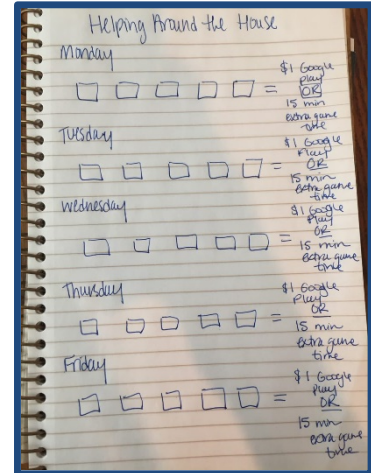 Helping Around the House
Monday
= $1 Google
Play
OR
15 min
extra game
time
Tuesday
= $1 Google
Play
OR
15 min
extra game
time
Wednesday
= $1 Google
Play
OR
15 min
extra game
time
Thursday
= $1 Google
Play
OR
15 min
extra game
time
Friday
= $1 Google
Play
OR
15 min
extra game
time